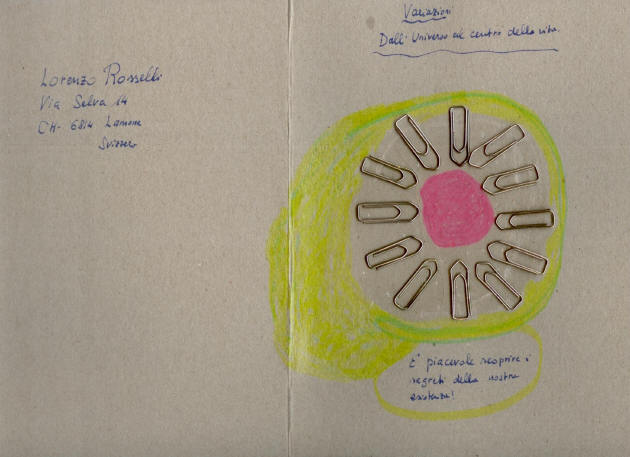 Lorenzo Rosselli
Via Selva 14
CH- 6814 Lamone
Svizzera
Variazioni
Dall' Universo al centro della vita.
È piacevole scoprire i
segreti della nostra
esistenza!